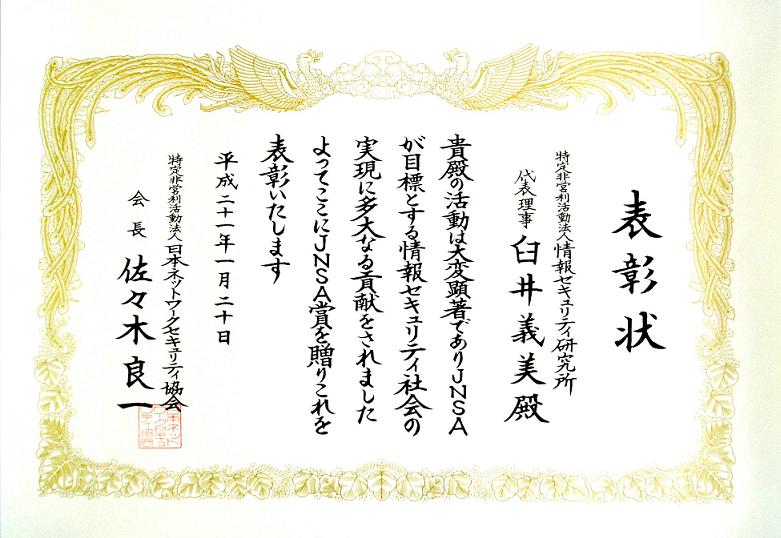 表彰状
特定非営利活動法人情報セキュリティ研究所
代表理事 臼井義美殿
貴殿の活動は大変顕著でありJNSA
が目標とする情報セキュリティ社会の
実現に多大なる貢献をされました
よってここにJNSA賞を贈りこれを
表彰いたします
平成二十一年一月二十日
特定非営利活動法人日本ネットワークセキュリティ協会
会長 佐々木良一